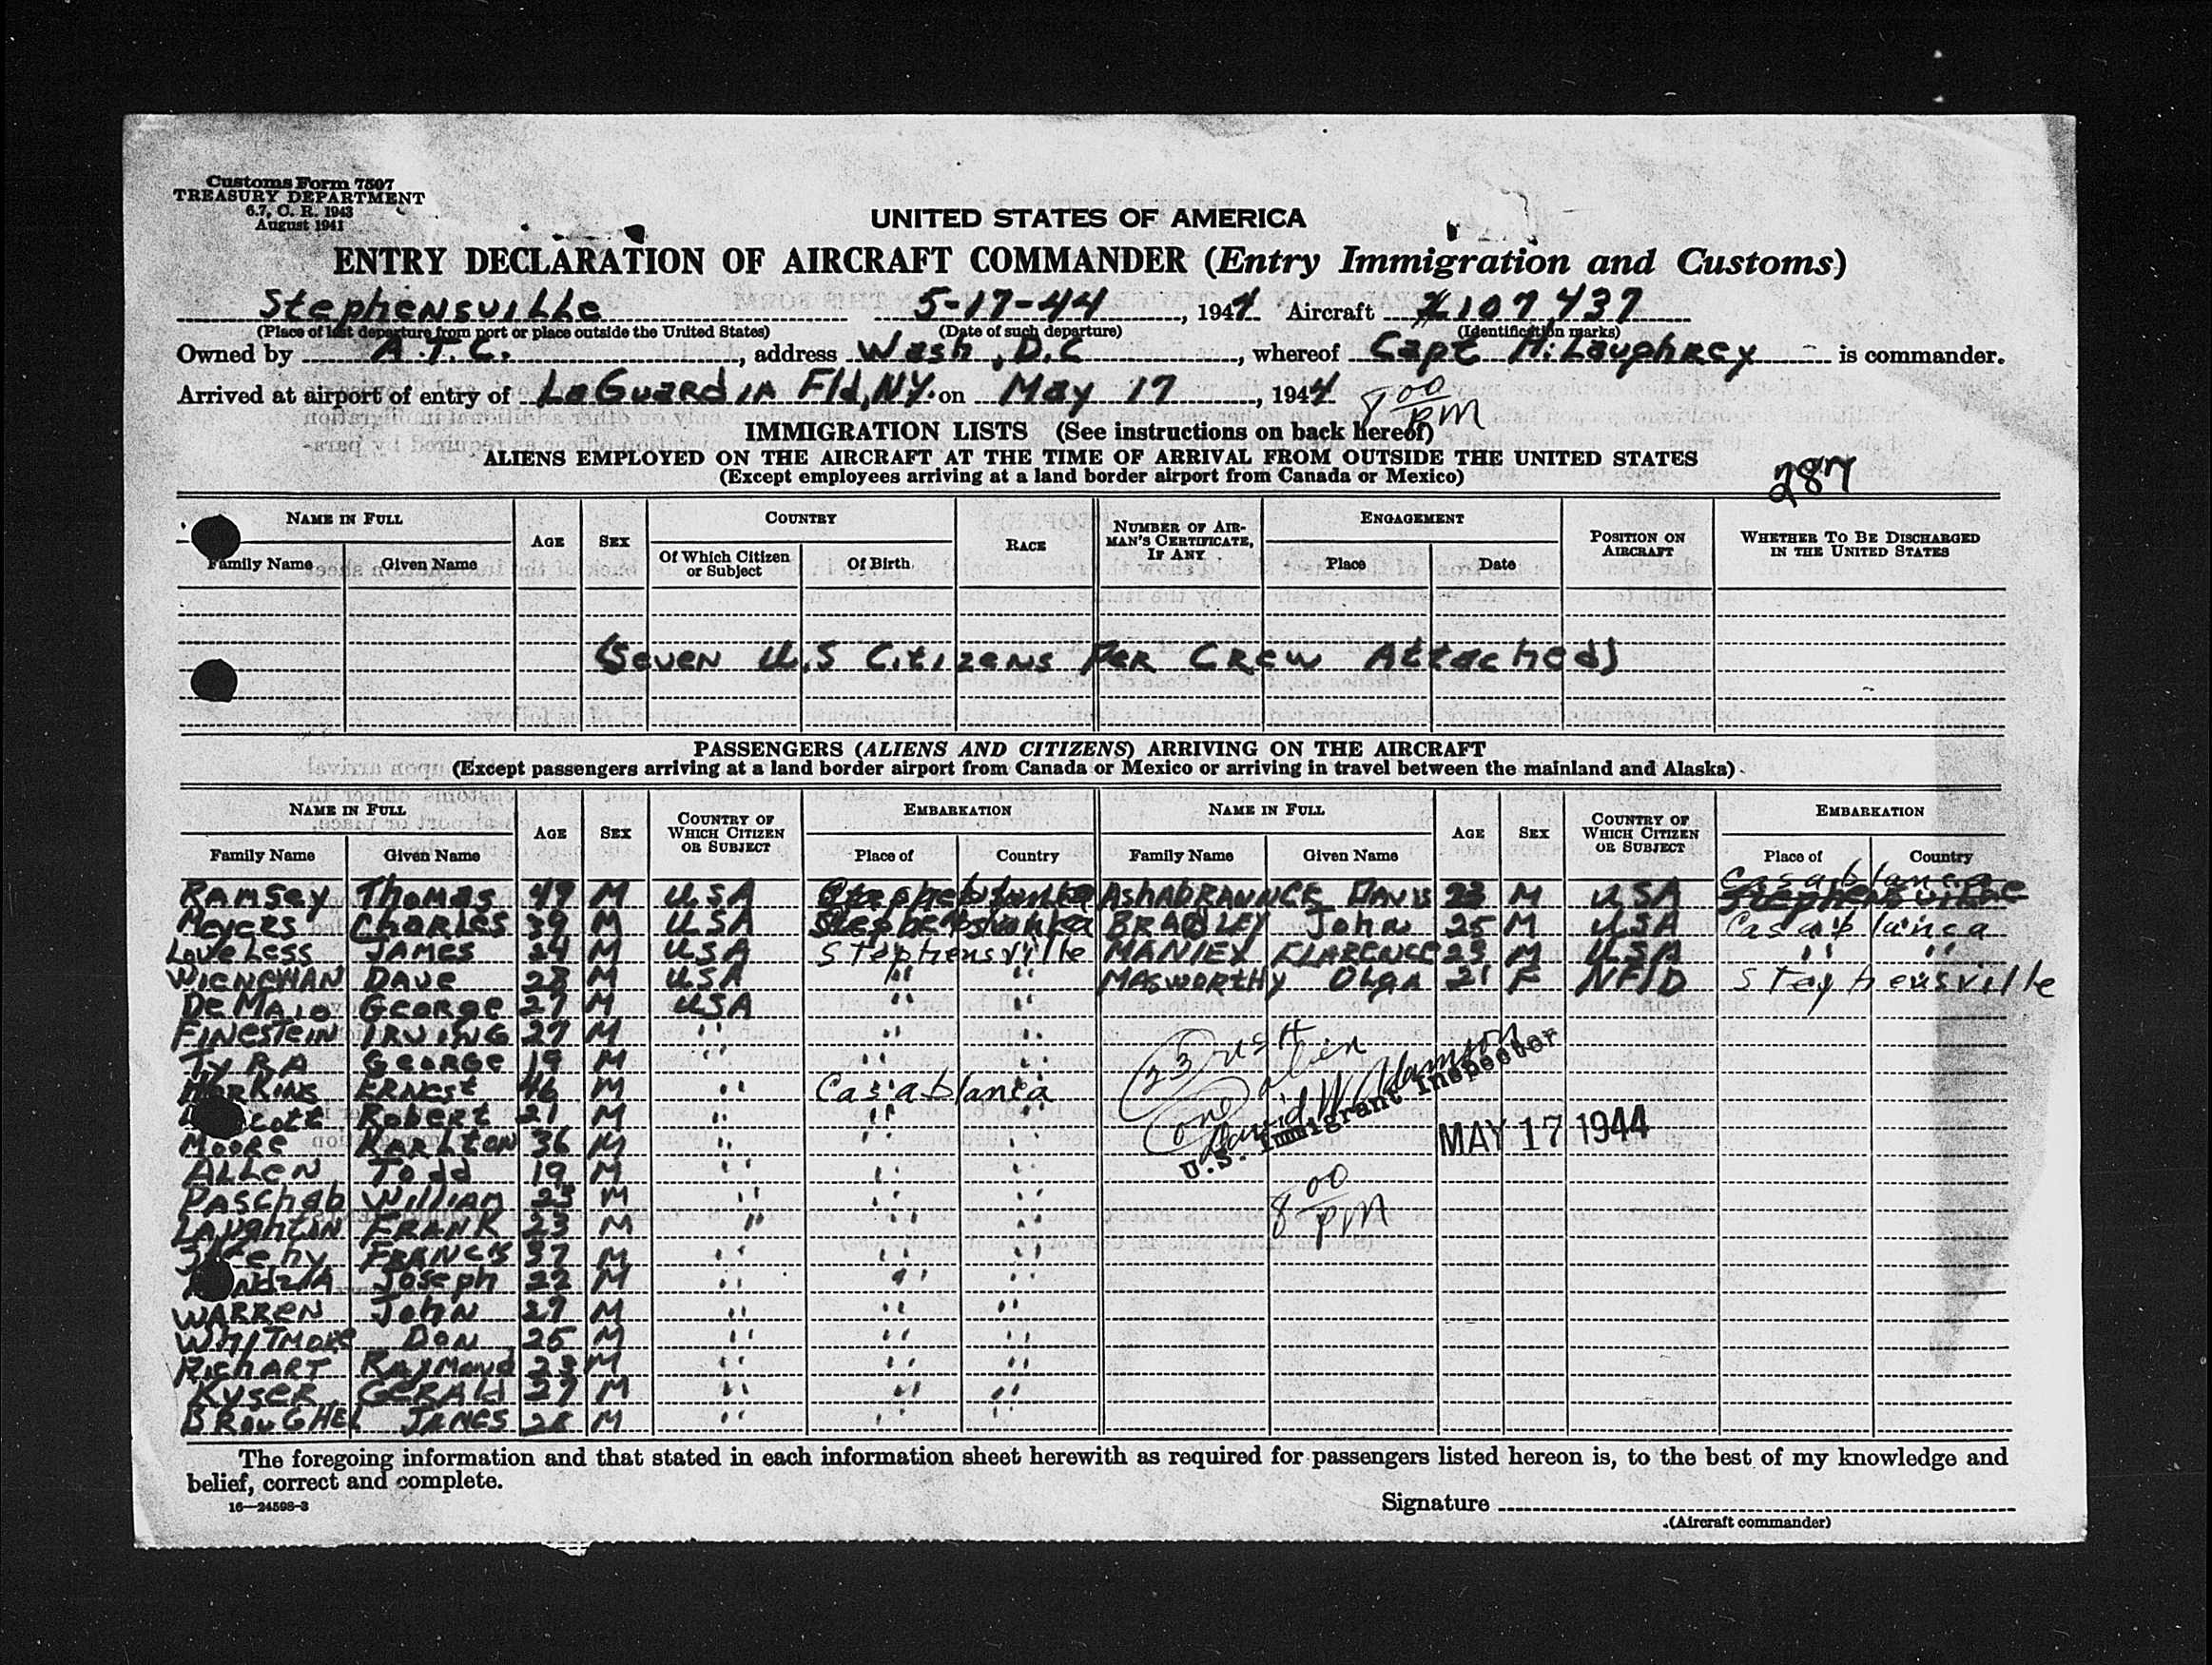 Customs Form 7507
TREASURY DEPARTMENT
6.7, C. R. 1943
August 1941
UNITED STATES OF AMERICA
ENTRY DECLARATION OF AIRCRAFT COMMANDER (Entry Immigration and Customs)
Stephensville 5-17-44, 1944 Aircraft 107437
(Place of last departure from port or place outside the United States) (Date of such departure) (Identification marks)
Owned by A.T.C., address Wash, D.C, whereof Capt is commander.
Arrived at airport of entry of LaGuardia Fld, NY. on May 17, 1944 8 00 pm
IMMIGRATION LISTS (See instructions on back hereof)
ALIENS EMPLOYED ON THE AIRCRAFT AT THE TIME OF ARRIVAL FROM OUTSIDE THE UNITED STATES
(Except employees arriving at a land border airport from Canada or Mexico)
287
NAME IN FULL AGE SEX COUNTRY RACE NUMBER OF AIRMAN'S CERTIFICATE, IF ANY ENGAGEMENT POSITION ON AIRCRAFT WHETHER TO BE DISCHARGED IN THE UNITED STATES
Family Name Given Name Of Which Citizen or Subject Of Birth Place Date
(Seven U.S Citizens Per Crew Attached)
PASSENGERS (ALIENS AND CITIZENS) ARRIVING ON THE AIRCRAFT
(Except passengers arriving at a land border airport from Canada or Mexico or arriving in travel between the mainland and Alaska)
NAME IN FULL AGE SEX COUNTRY OF WHICH CITIZEN OR SUBJECT EMBARKATION NAME IN FULL AGE SEX COUNTRY OF WHICH CITIZEN OR SUBJECT EMBARKATION
Family Name Given Name Place of Country Family Name Given Name Place of Country
Ramsey Thomas 49 M USA Davis 23 M USA Casablanca
Meyers Charles 39 M USA BRADLEY John 25 M USA Casablanca
LoveLess JAMES 24 M USA Stephensville MANLEY CLARENCE 23 M USA " "
Dave 28 M USA " " MASWORTHY Olga 21 F NFLD Stephensville
DeMaio George 27 M USA " "
FINESTEIN IRVING 27 M " " "
TYRA GEORGE 19 M " " "
HARKINS ERNEST 46 M " Casablanca
cott Robert 21 M " " "
Moore KARLTON 36 M " " "
ALLEN Todd 19 M " " "
PASCHAB WILLIAM 23 M " " "
LAUGHLIN FRANK 23 M " " "
Sheehy FRANCIS 37 M " " "
Joseph 22 M " " "
WARREN John 27 M " " "
WHITMORE DON 25 M " " "
RICHART RAYMOND 23 M " " "
KYSER GERALD 27 M " " "
BROUGHEL JAMES 28 M " " "
(23) USA
(one) alien
David W Adamson
U.S. Immigrant Inspector
MAY 17 1944
8 00 pm
The foregoing information and that stated in each information sheet herewith as required for passengers listed hereon is, to the best of my knowledge and
belief, correct and complete.
16—24598-3
Signature
(Aircraft commander)